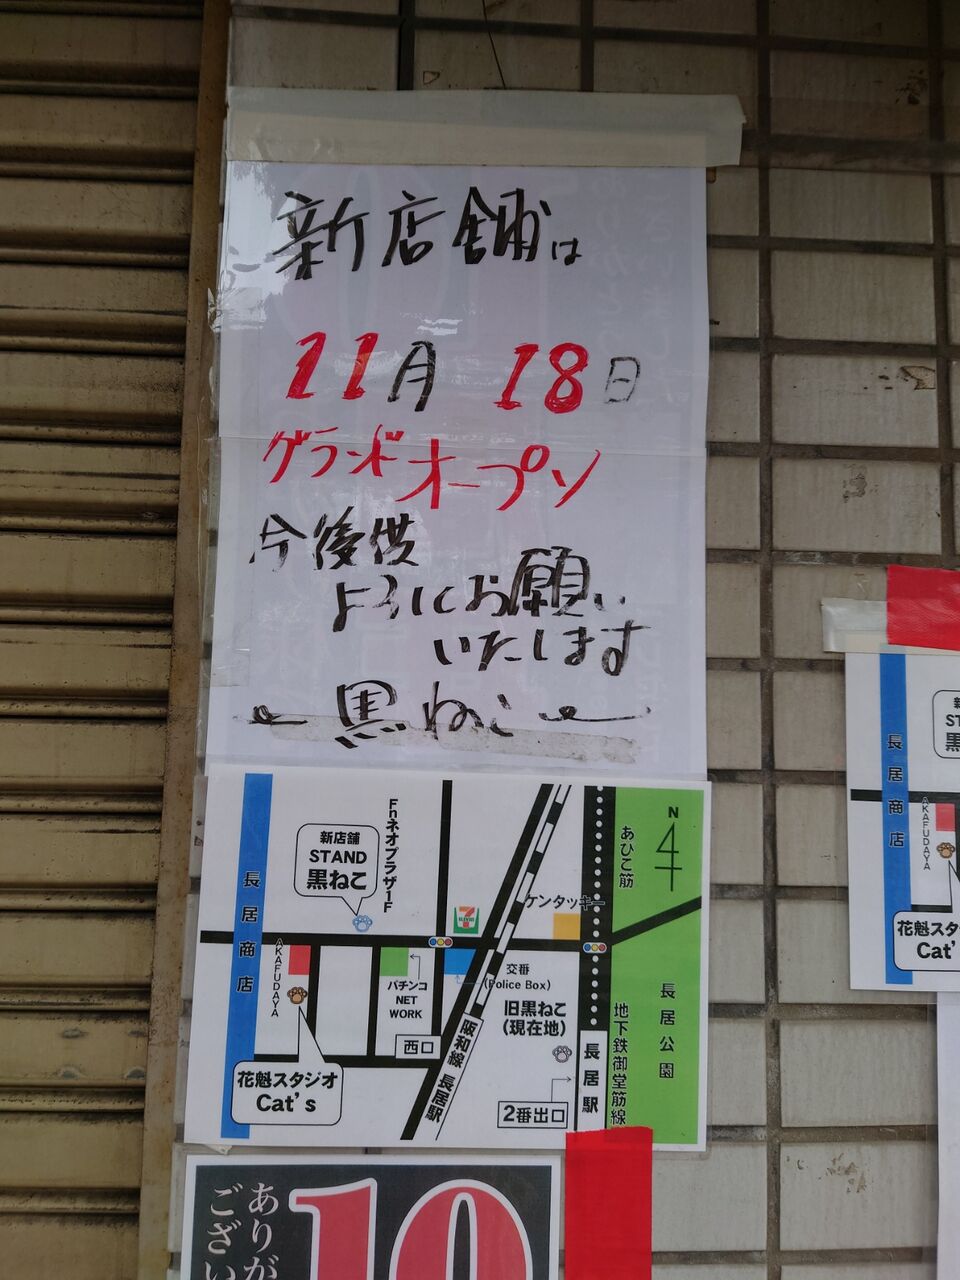 新店舗は
11月 18日
グランドオープン
今後供
ようにお願い
いたします
黒ねこ
長居商店
新店舗
STAND
黒ねこ
Fnネオプラザ1F
AKAFUDAYA
花魁スタジオ
Cat's
パチンコ
NET
WORK
西口
7
ELEVEN
交番
(Police Box)
ケンタッキー
旧黒ねこ
(現在地)
2番出口
阪和線 長居駅
長居駅
あびこ筋
地下鉄御堂筋線
N
長居公園
長居商店
AKAFUDAYA
花魁スタ
Cat'
ありが
ござい
10